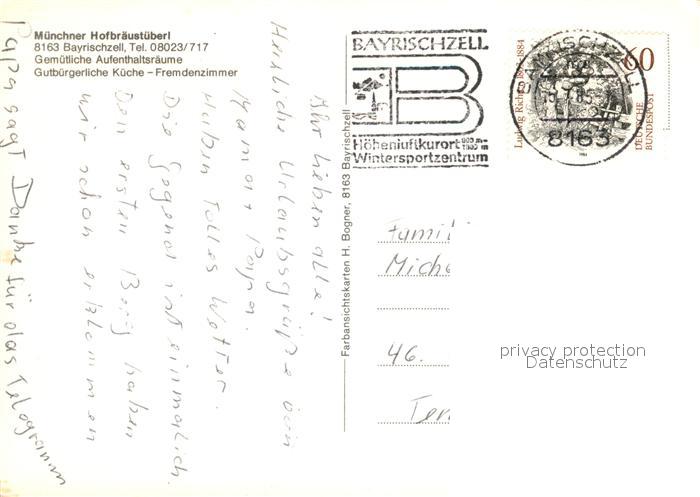 Münchner Hofbräustüberl
8163 Bayrischzell, Tel. 08023/717
Gemütliche Aufenthaltsräume
Gutbürgerliche Küche – Fremdenzimmer
Ihr lieben alle!
Herzliche Urlaubsgrüße von
Mama + Papa.
Haben tolles Wetter.
Die Gegend ist einmalich.
Den ersten Berg haben
wir schon erklommen
Papa sagt Danke für das Telegramm
Farbansichtskarten H. Bogner, 8163 Bayrischzell
BAYRISCHZELL
B
Höhenluftkurort 800 m–
Wintersportzentrum
BAYRISCHZELL
8163
Ludwig Richter 1803-1884
60
DEUTSCHE
BUNDESPOST
Famil
Miche
46.
privacy protection
Datenschutz